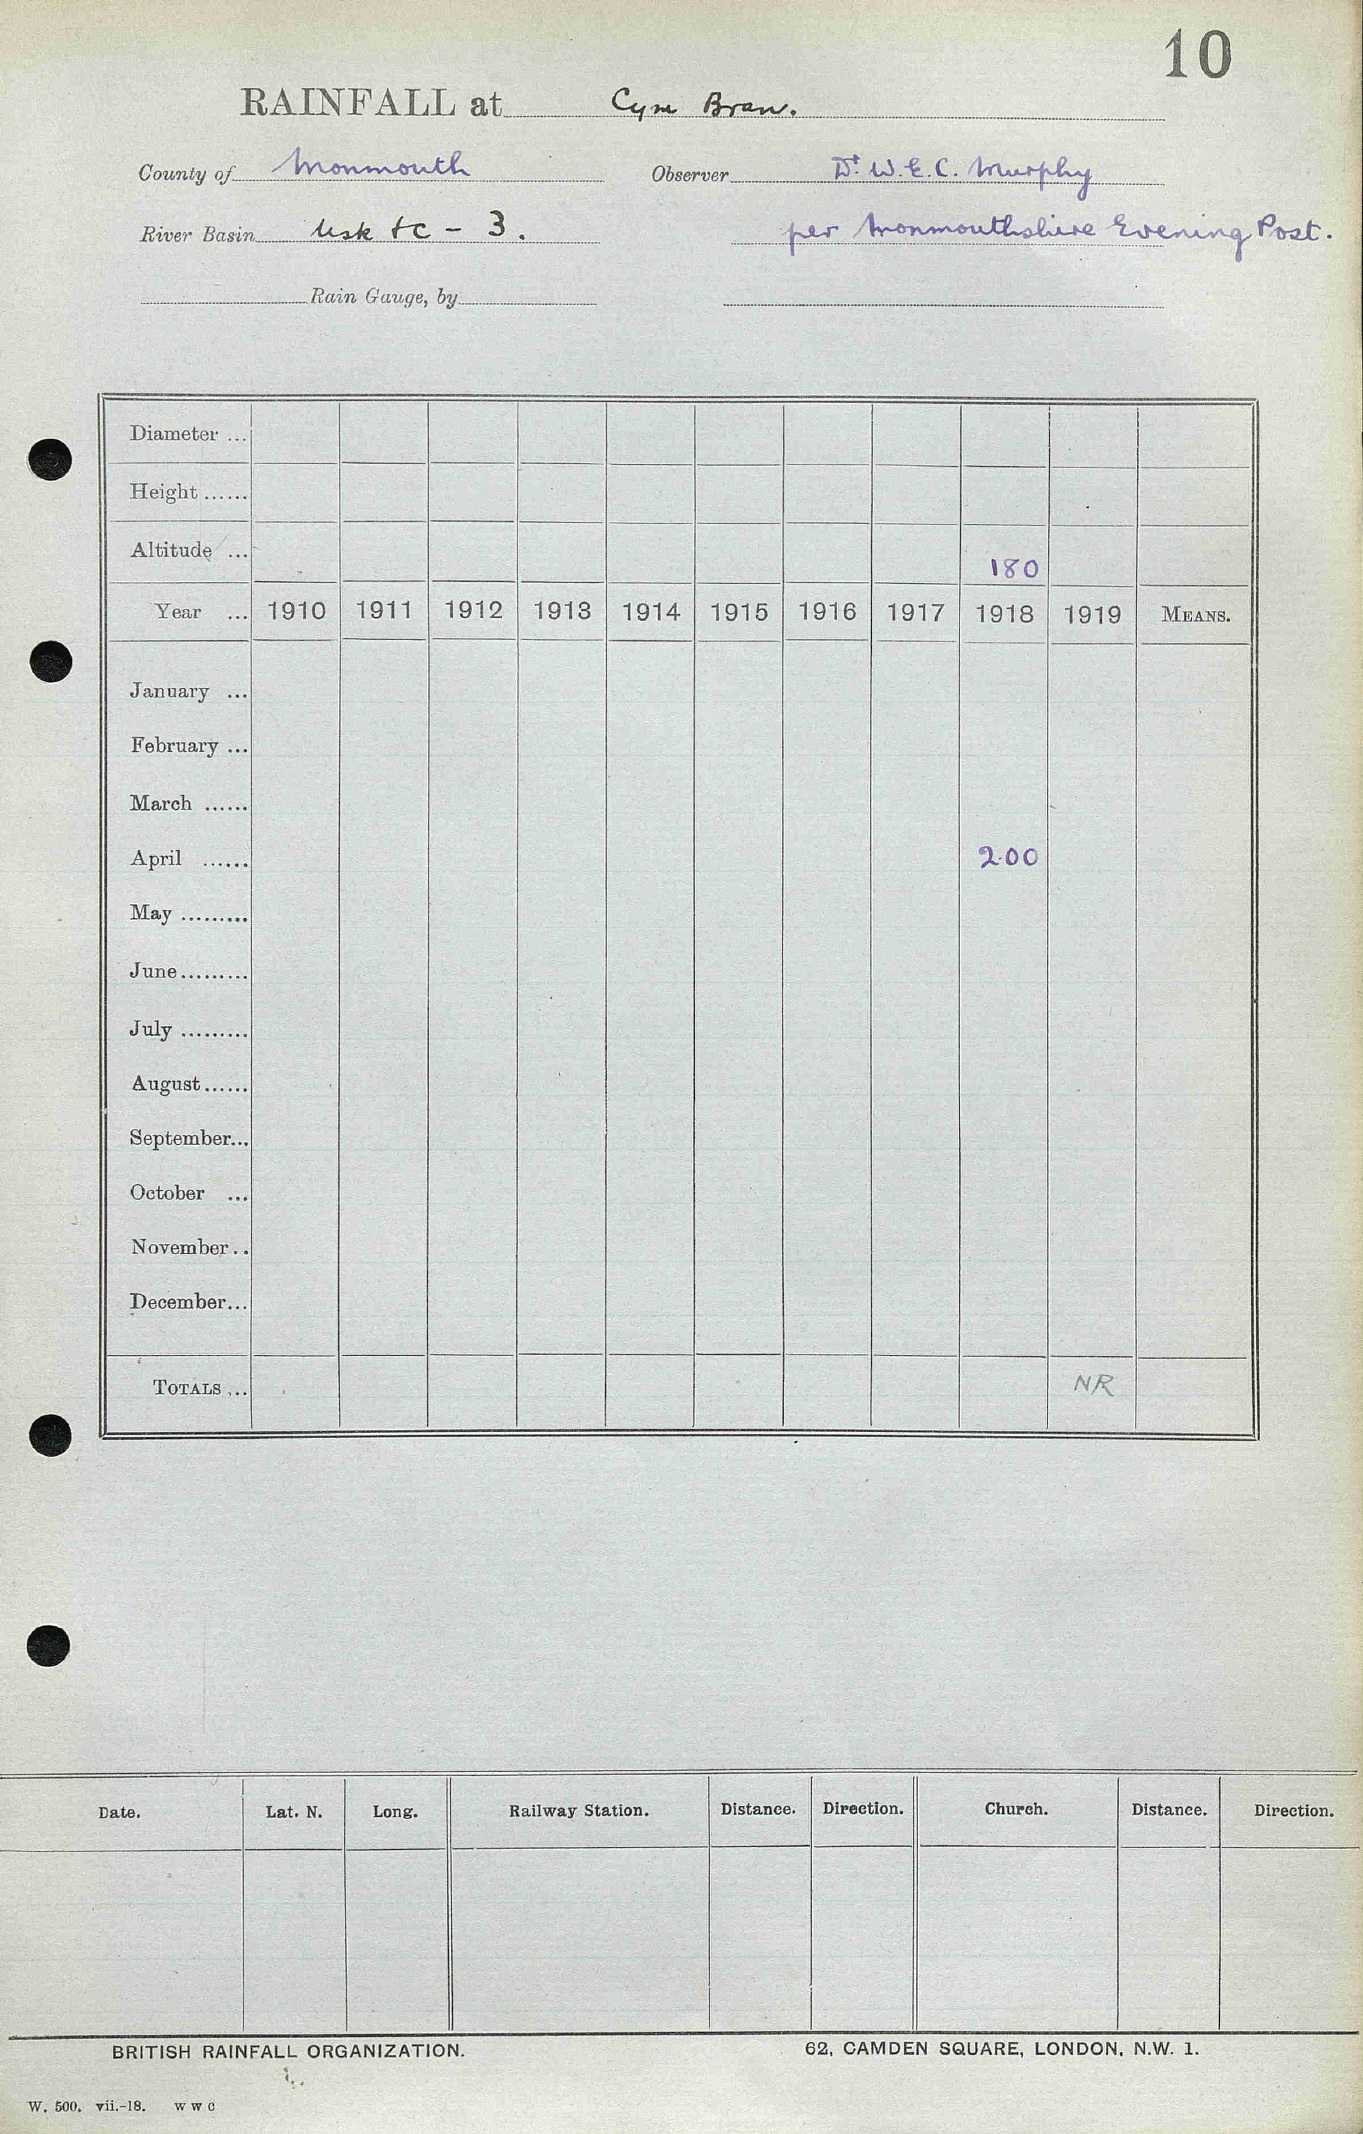 10
RAINFALL at Cym Bran.
County of Monmouth Observer Dr. W.E.C. Murphy
River Basin Usk &c - 3. per Monmouthshire Evening Post.
Rain Gauge, by
Diameter ...
Height ......
Altitude ... 180
Year ... 1910 1911 1912 1913 1914 1915 1916 1917 1918 1919 MEANS.
January ...
February ...
March ......
April ...... 2.00
May .........
June.........
July .........
August......
September...
October ...
November..
December...
TOTALS ... NR
Date. Lat. N. Long. Railway Station. Distance. Direction. Church. Distance. Direction.
BRITISH RAINFALL ORGANIZATION. 62, CAMDEN SQUARE, LONDON, N.W. 1.
W. 500. vii.-18. W W C